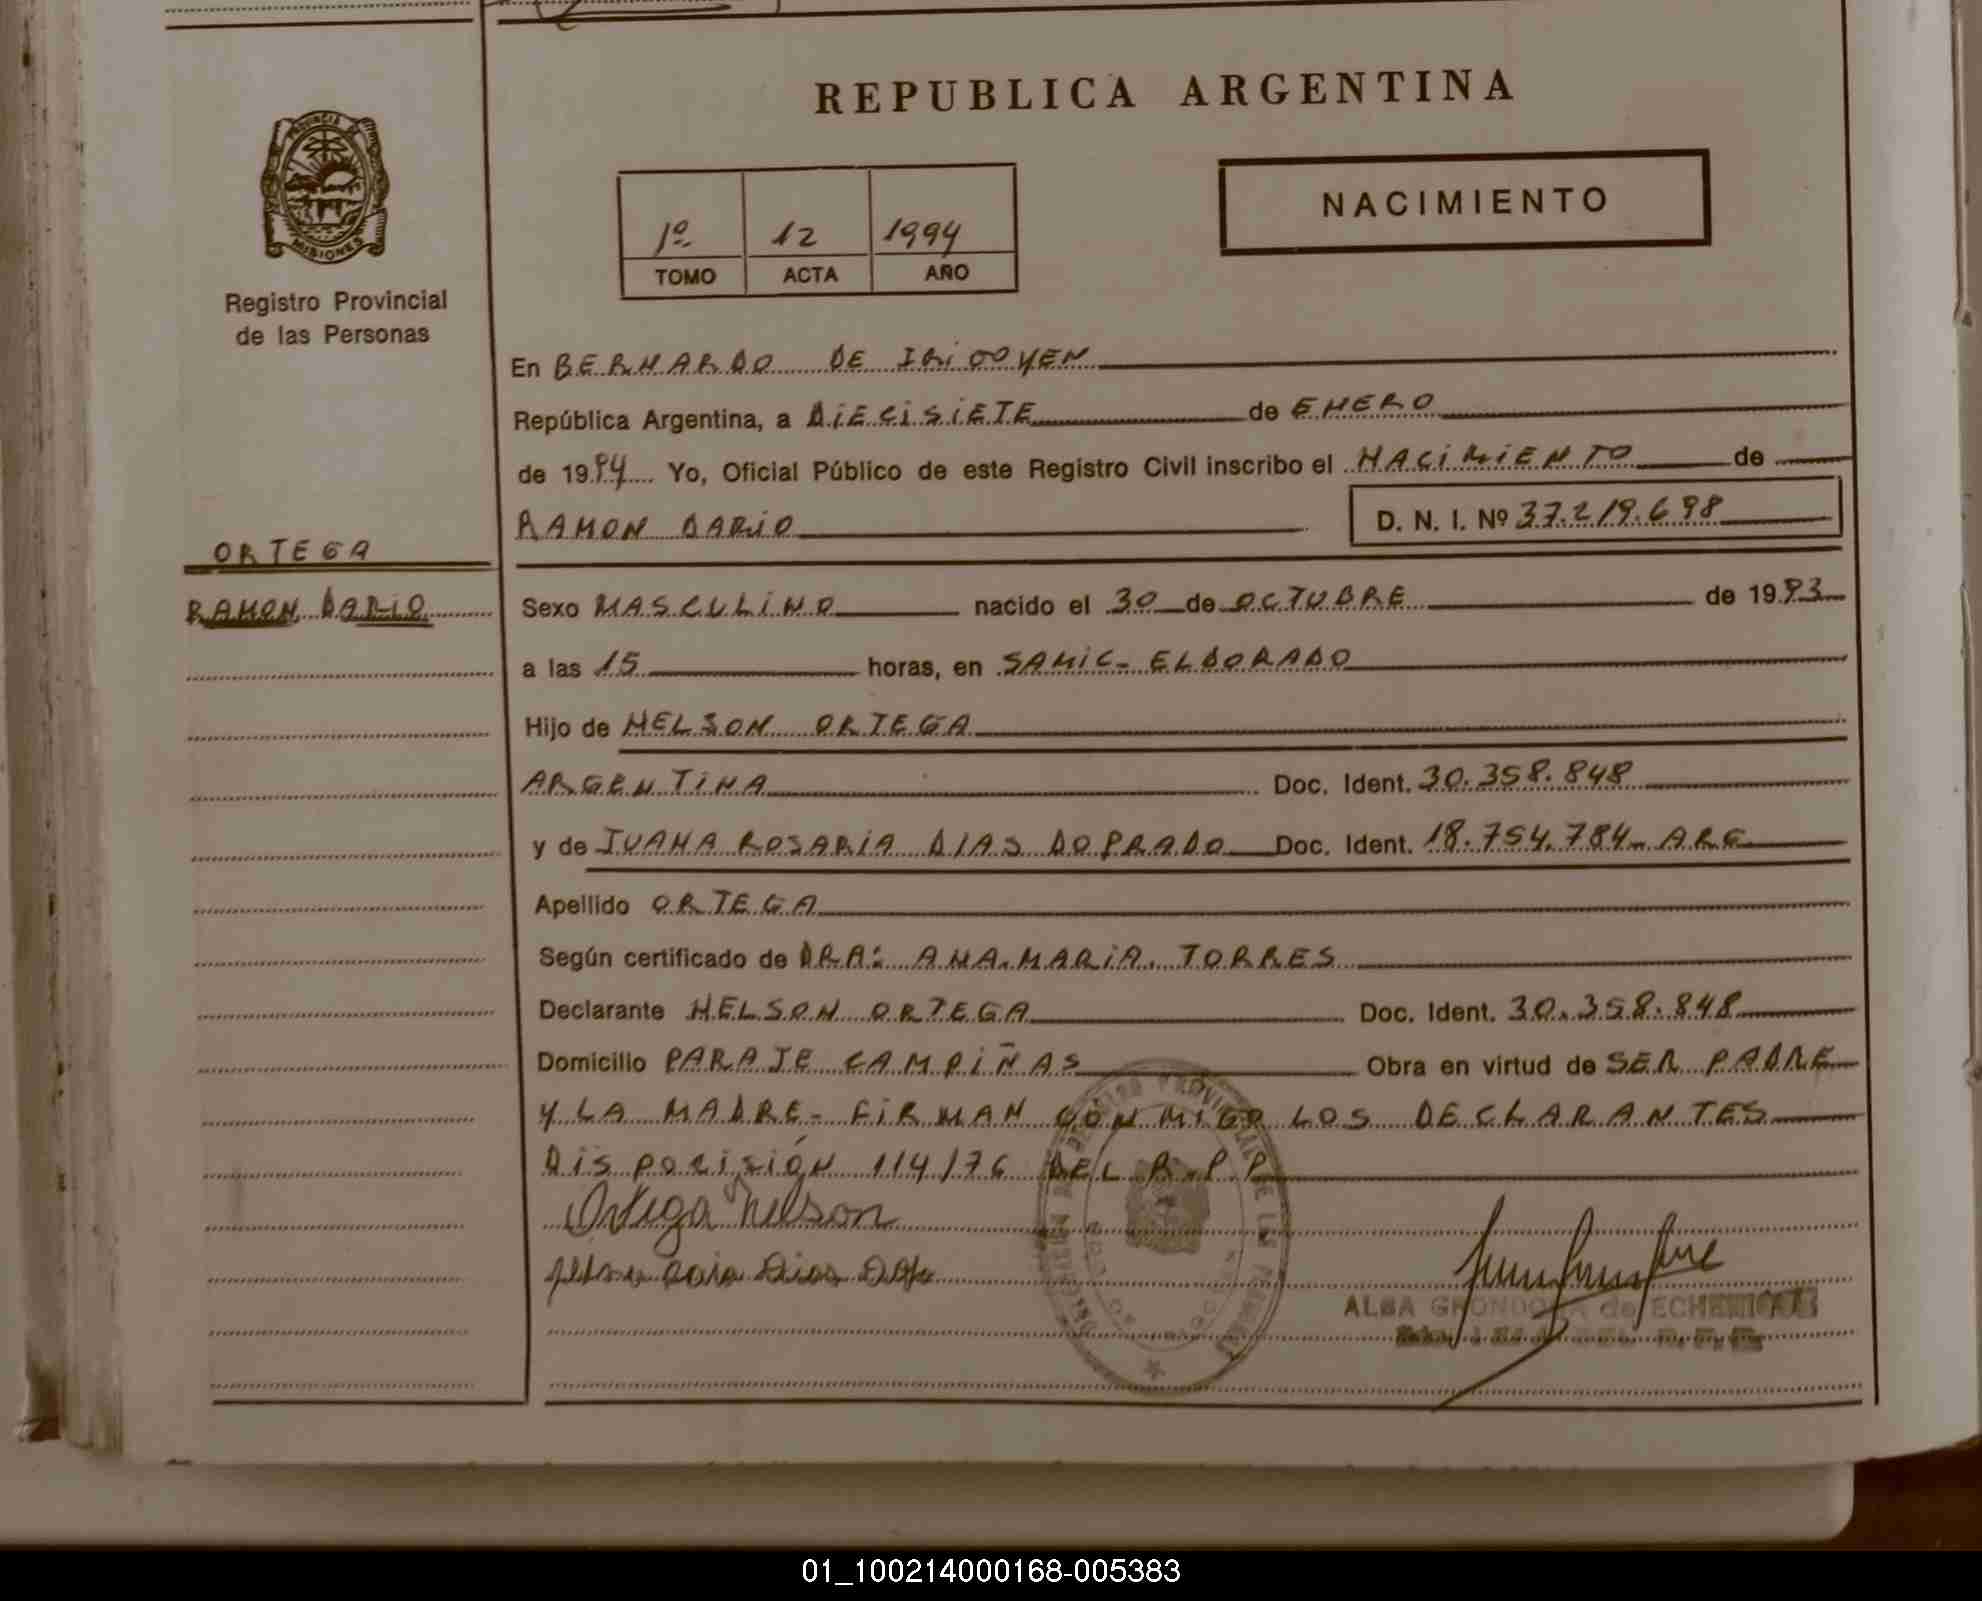 REPUBLICA ARGENTINA
PROVINCIA DE
MISIONES
Registro Provincial
de las Personas
1º 12 1994
TOMO ACTA AÑO
NACIMIENTO
En BERNARDO DE IRIGOYEN
República Argentina, a DIECISIETE de ENERO
de 1994 Yo, Oficial Público de este Registro Civil inscribo el NACIMIENTO de
RAMON DARIO D. N. I. Nº 37.219.698
ORTEGA
RAMON DARIO
Sexo MASCULINO nacido el 30 de OCTUBRE de 1993
a las 15 horas, en SAMIC- ELDORADO
Hijo de NELSON ORTEGA
ARGENTINA Doc. Ident. 30.358.848
y de JUANA ROSARIA DIAS DOPRADO Doc. Ident. 18.754.784- ARG
Apellido ORTEGA
Según certificado de DRA: ANA.MARIA. TORRES
Declarante NELSON ORTEGA Doc. Ident. 30.358.848
Domicilio PARAJE CAMPIÑAS Obra en virtud de SER PADRE
Y LA MADRE- FIRMAN CONMIGO LOS DECLARANTES
DISPOCISIÓN 114/76 DEL R.P.P
Ortega Nelson
Dias
ALBA GRONDONA de ECHENIQUE
01_100214000168-005383